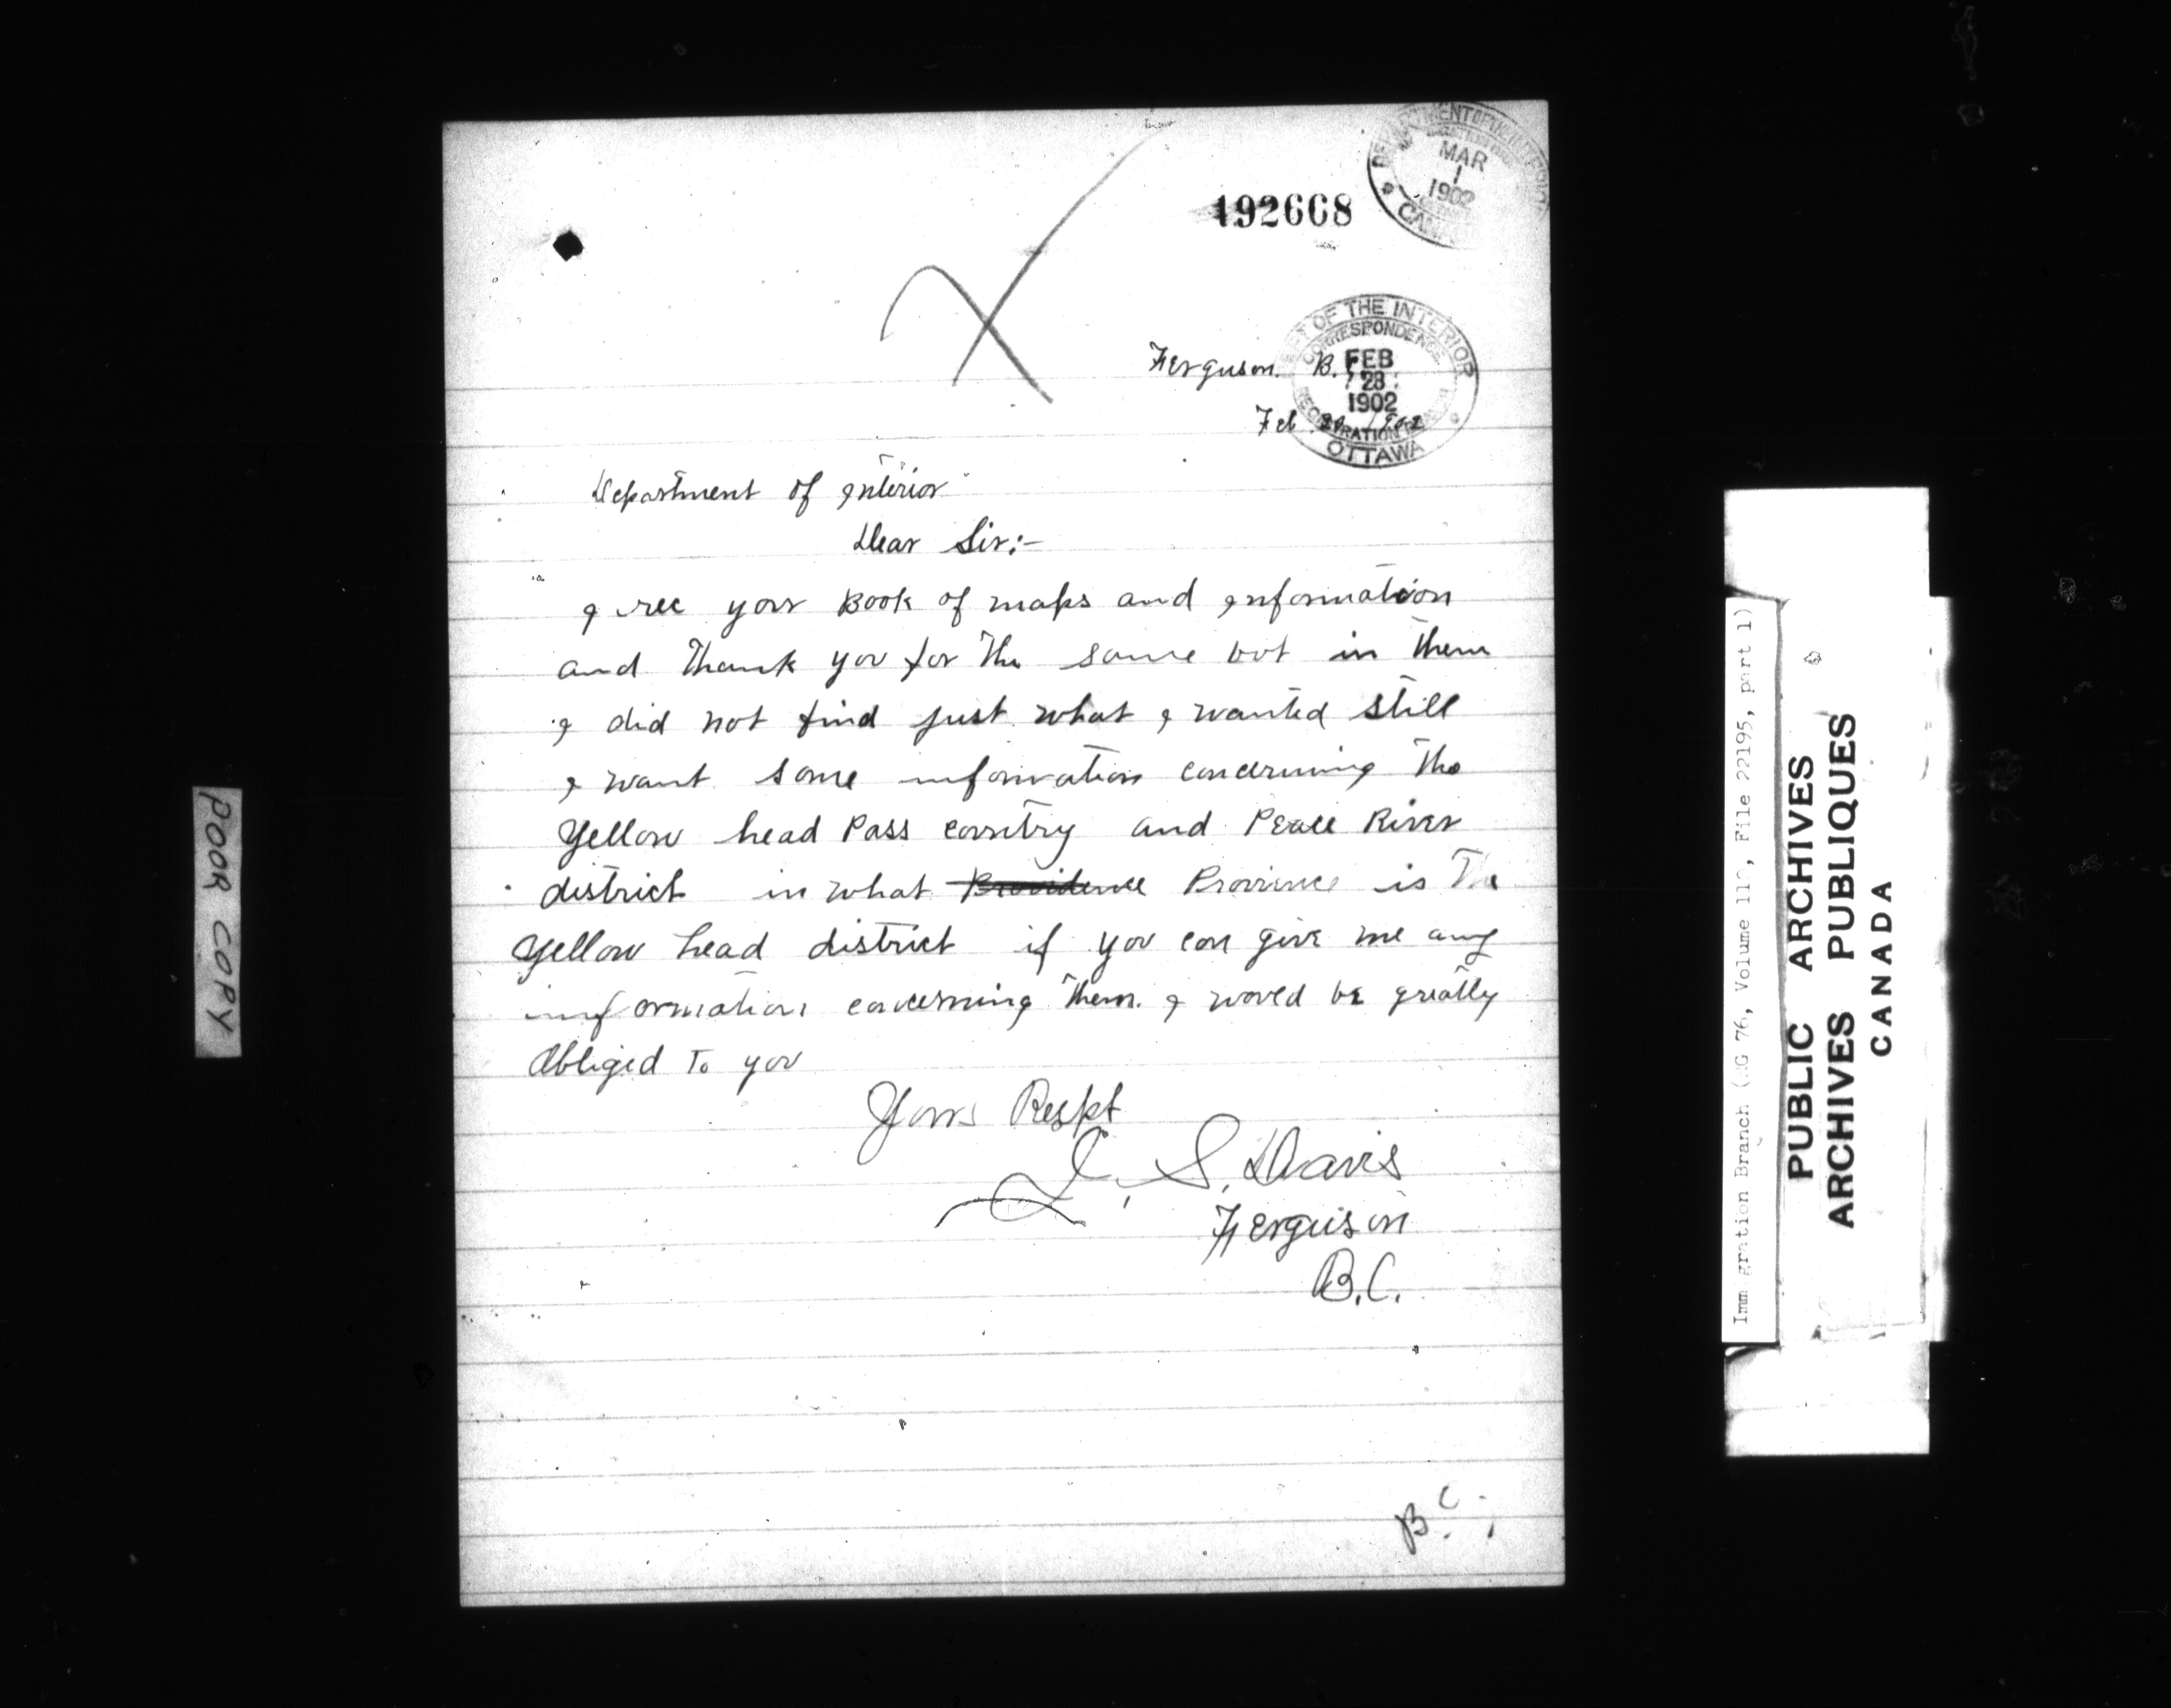 DEPARTMENT OF THE INTERIOR
MAR
1
1902
CANADA
192668
DEPT OF THE INTERIOR
CORRESPONDENCE
FEB
28
1902
REGISTRATION
OTTAWA
Ferguson. B.
Feb 1902
Department of Interior
Dear Sir:-
I rec your Book of maps and Information
and Thank you for The same but in Them
I did not find just what I wanted still
I want some information concerning The
Yellow head Pass country and Peace River
district in what Providence Province is The
Yellow head district if you can give me any
information concerning Them. I would be greatly
Obliged To you
Yours Respt
S. Davis
Ferguson
B.C.
B.C.
POOR COPY
Immigration Branch (RG 76, Volume File 22195, part 1)
PUBLIC ARCHIVES
ARCHIVES PUBLIQUES
CANADA